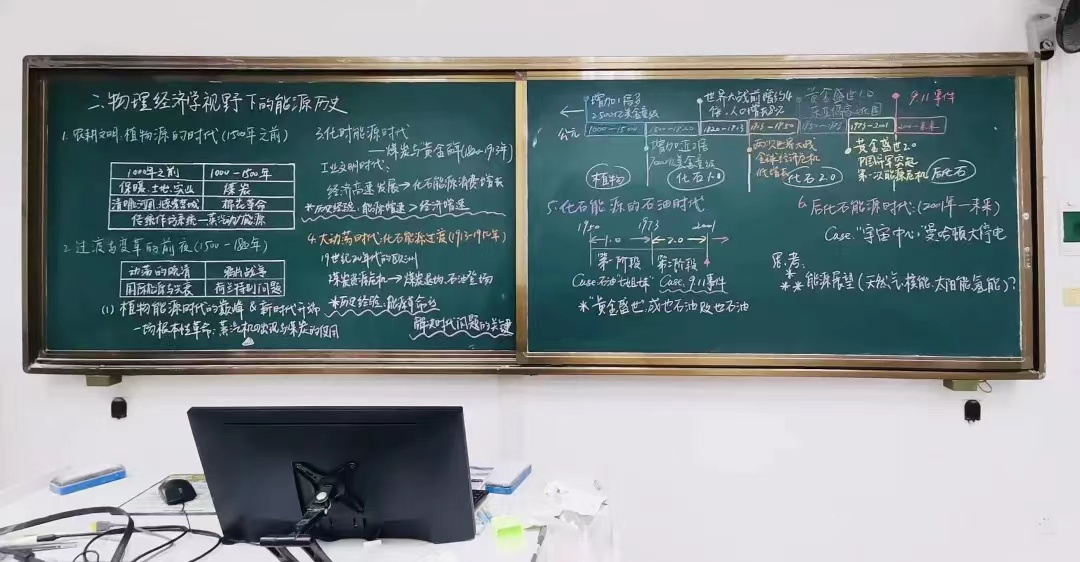 二.物理经济学视野下的能源历史
1.农耕文明:植物源的时代(1500年之前)
1000年之前 1000-1500年
保暖.土地.实业 煤炭
棉花革命
2.过渡与变革的前夜(1500-1820年)
动荡的欧洲
荷兰特别问题
(1)植物能源时代的巅峰&新时代开始
一场根本性革命:蒸汽机的出现与煤炭的使用
3.化时能源时代
——煤炭与黄金 (1820-1913年)
工业文明时代:
经济高速发展→化石能源消费增长
*历史经验:能源增速>经济增速
4.大动荡时代:化石能源过渡(1913-1950年)
19世纪20年代的欧洲
煤炭资源危机→煤炭退场,石油登场
*历史经验:能源革命是
解决时代问题的关键
增加1倍多
世界大战前增约4
倍,人口增长
黄金盛世1.0
9.11事件
公元
1000-1500 1500-1820 1820-1913 1913-1950 1973-2001 2001-未来
两次世界大战
全球经济危机
低增长
黄金盛世2.0
第一次能源危机
植物 化石1.0 化石2.0 后化石
5.化石能源的石油时代
1950 1973 2001
1.0 2.0
第一阶段 第二阶段
Case:石油"七姐妹" Case:9.11事件
*"黄金盛世",成也石油败也石油
6.后化石能源时代:(2001年—未来)
Case:"宇宙中心",曼哈顿大停电
思考:
*
**能源展望(天然气,核能,太阳能,氢能)?